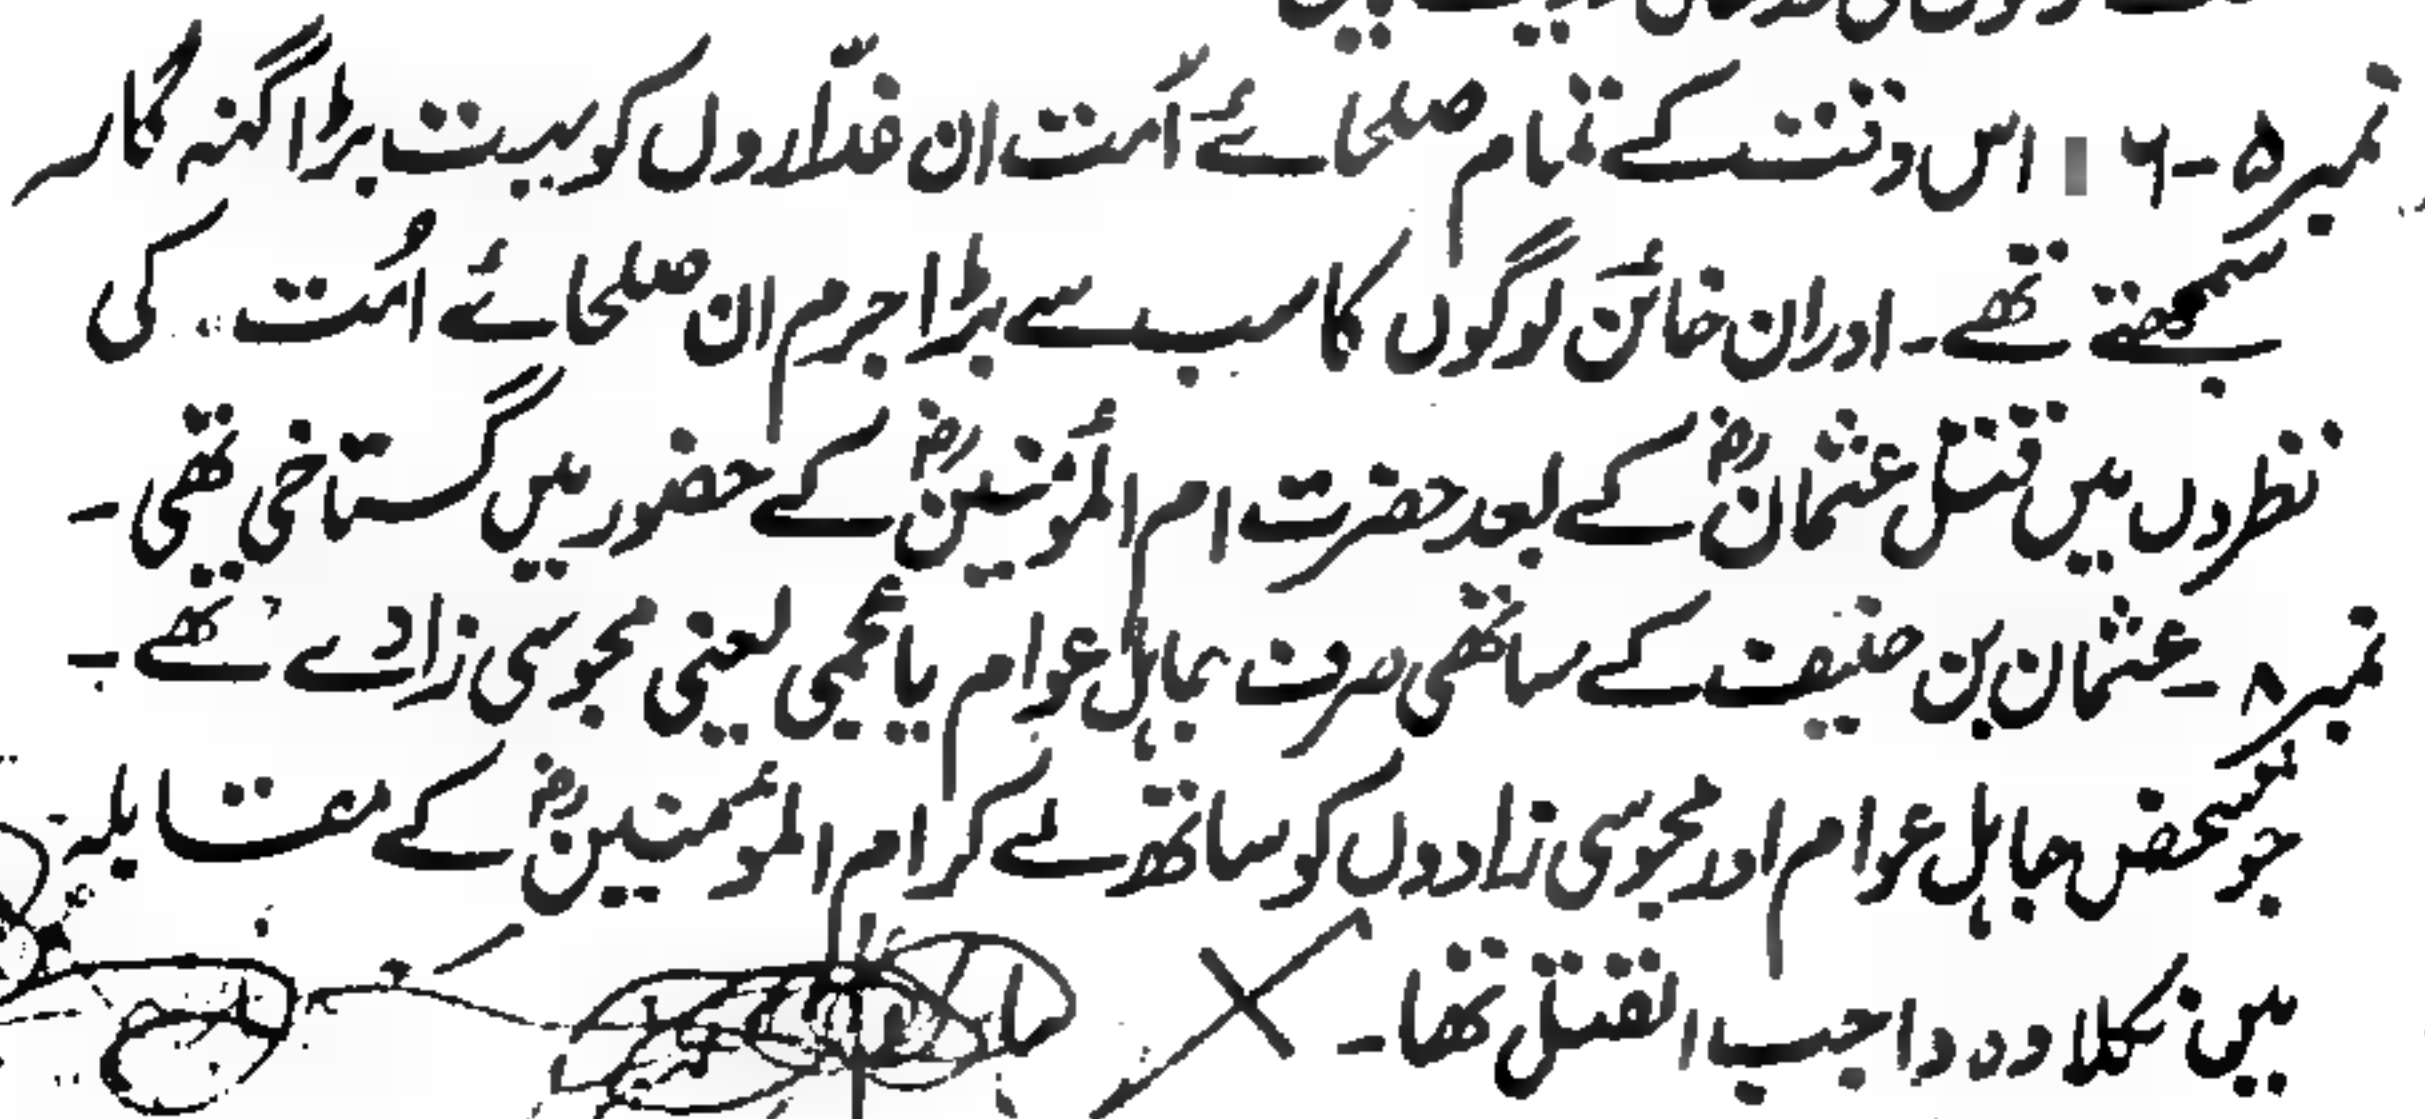 نمبر ۵-۶ اس وقت کے تمام صلحائے اُمت ان غدّاروں کو بہت بڑا گنہ گار
سمجھتے تھے۔ اور ان خائن لوگوں کا سب سے بڑا جرم ان صلحائے اُمت کی
نظروں میں قتل عثمانؓ کے بعد حضرت ام المؤمنینؓ کے حضور میں گستاخی تھی۔
نمبر ۸۔ عثمان بن حنیف کے ساتھی صرف جاہل عوام یا عجمی یعنی مجوسی زادے تھے۔
جو شخص جاہل عوام اور مجوسی زادوں کو ساتھ لے کر ام المؤمنینؓ کے مقابلہ
میں نکلا وہ واجب القتل تھا۔